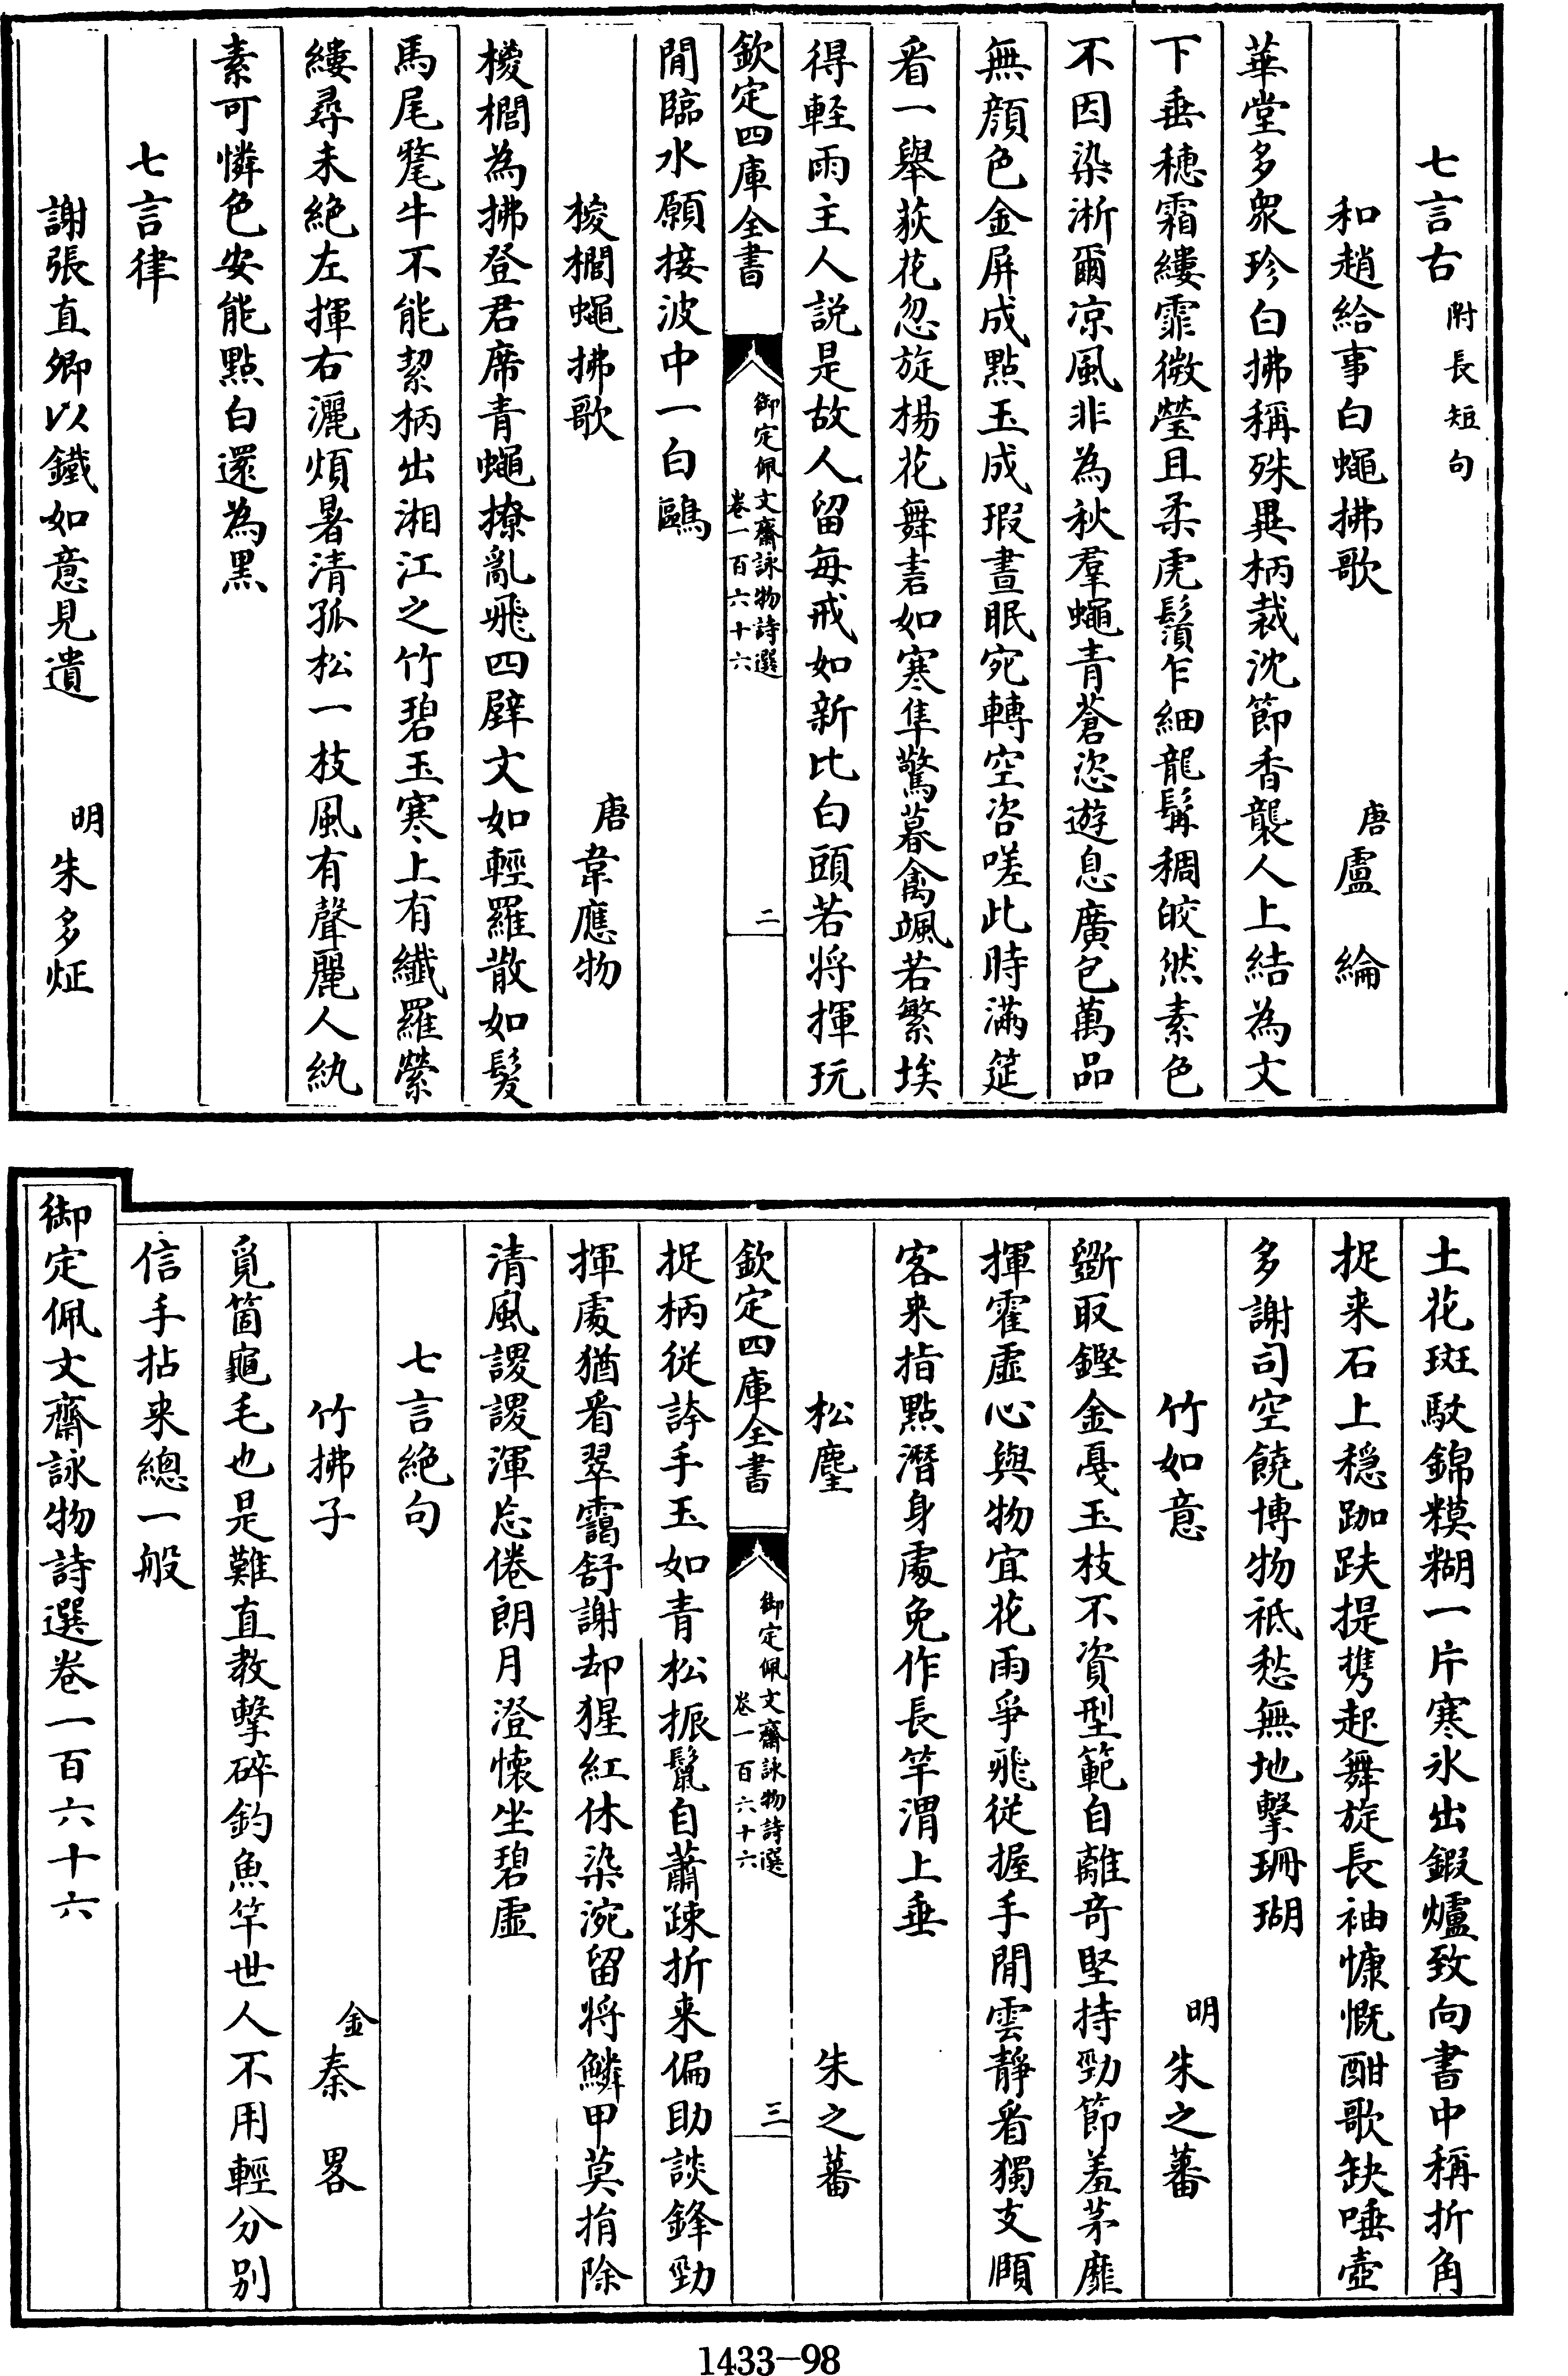 七言古附長短句
和趙給事白蠅拂歌 唐盧綸
華堂多衆珍白拂稱殊異柄裁沈節香襲人上結為文
下垂穗霜縷霏微瑩且柔虎鬚乍細龍髯稠皎然素色
不因染淅爾凉風非為秋羣蠅青蒼恣遊息廣包萬品
無顔色金屏成點玉成瑕晝眠宛轉空咨嗟此時滿筵
看一舉荻花忽旋楊花舞砉如寒隼驚暮禽颯若繁埃
得輕雨主人説是故人留每戒如新比白頭若將揮玩
欽定四庫全書
御定佩文齋詠物詩選
卷一百六十六
二
閒臨水願接波中一白鷗
椶櫚蠅拂歌 唐韋應物
椶櫚為拂登君席青蠅撩亂飛四壁文如輕羅散如髮
馬尾氂牛不能絜柄出湘江之竹碧玉寒上有纎羅縈
縷尋未絶左揮右灑煩暑清孤松一枝風有聲麗人紈
素可憐色安能點白還為黑
七言律
謝張直卿以鐵如意見遺 明朱多炡
土花斑駁錦糢糊一片寒氷出鍛爐致向書中稱折角
捉来石上穏跏趺提攜起舞旋長袖慷慨酣歌缺唾壺
多謝司空饒博物祗愁無地擊珊瑚
竹如意 明朱之蕃
斲取鏗金戛玉枝不資型範自離竒堅持勁節羞茅靡
揮霍虛心與物宜花雨爭飛從握手閒雲靜看獨支頤
客来指點潛身處免作長竿渭上垂
松麈 朱之蕃
欽定四庫全書
御定佩文齋詠物詩選
卷一百六十六
三
捉柄從誇手玉如青松振鬛自蕭踈折来偏助談鋒勁
揮處猶看翠靄舒謝却猩紅休染涴留將鱗甲莫捐除
清風謖謖渾忘倦朗月澄懷坐碧虛
七言絶句
竹拂子 金秦畧
覓箇龜毛也是難直教擊碎釣魚竿世人不用輕分别
信手拈来總一般
御定佩文齋詠物詩選卷一百六十六
1433-98